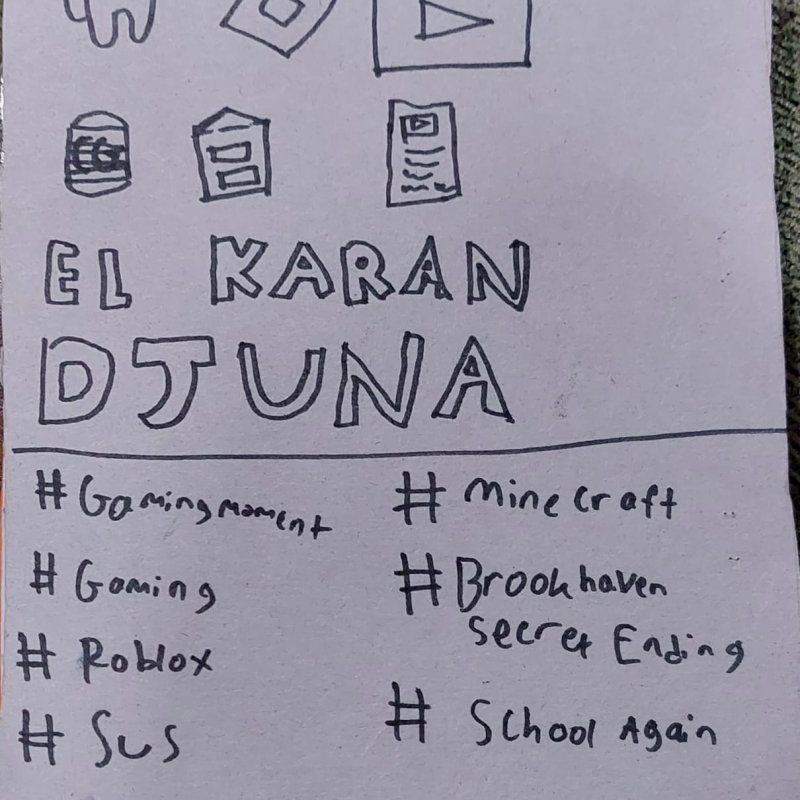 EL KARAN
DJUNA
#Gamingmoment
#Gaming
#Roblox
#Sus
#minecraft
#Brookhaven
secret Ending
#School Again